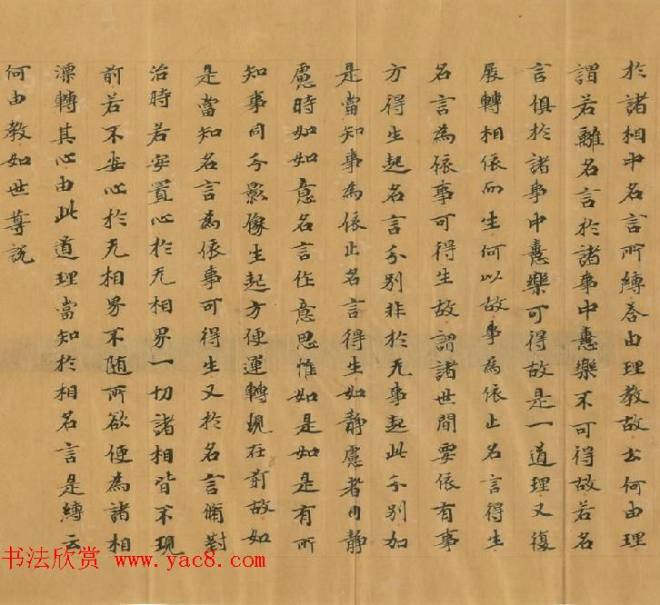 於諸相中名言所縛答由理教故云何由理
謂若離名言於諸事中憙樂不可得故若名
言俱於諸事中憙樂可得故是一道理又復
展轉相依而生何以故事為依止名言得生
名言為依事可得生故謂諸世間要依有事
方得生起名言分別非於无事起此分別如
是當知事為依止名言得生如靜慮者內靜
慮時如如意名言作意思惟如是如是有所
知事同分影像生起方便運轉現在前故如
是當知名言為依事可得生又於名言備對
治時若安置心於无相界一切諸相皆不現
前若不安心於无相界不隨所欲便為諸相
漂轉其心由此道理當知於相名言是縛云
何由教如世尊說
书法欣赏 www.yac8.com